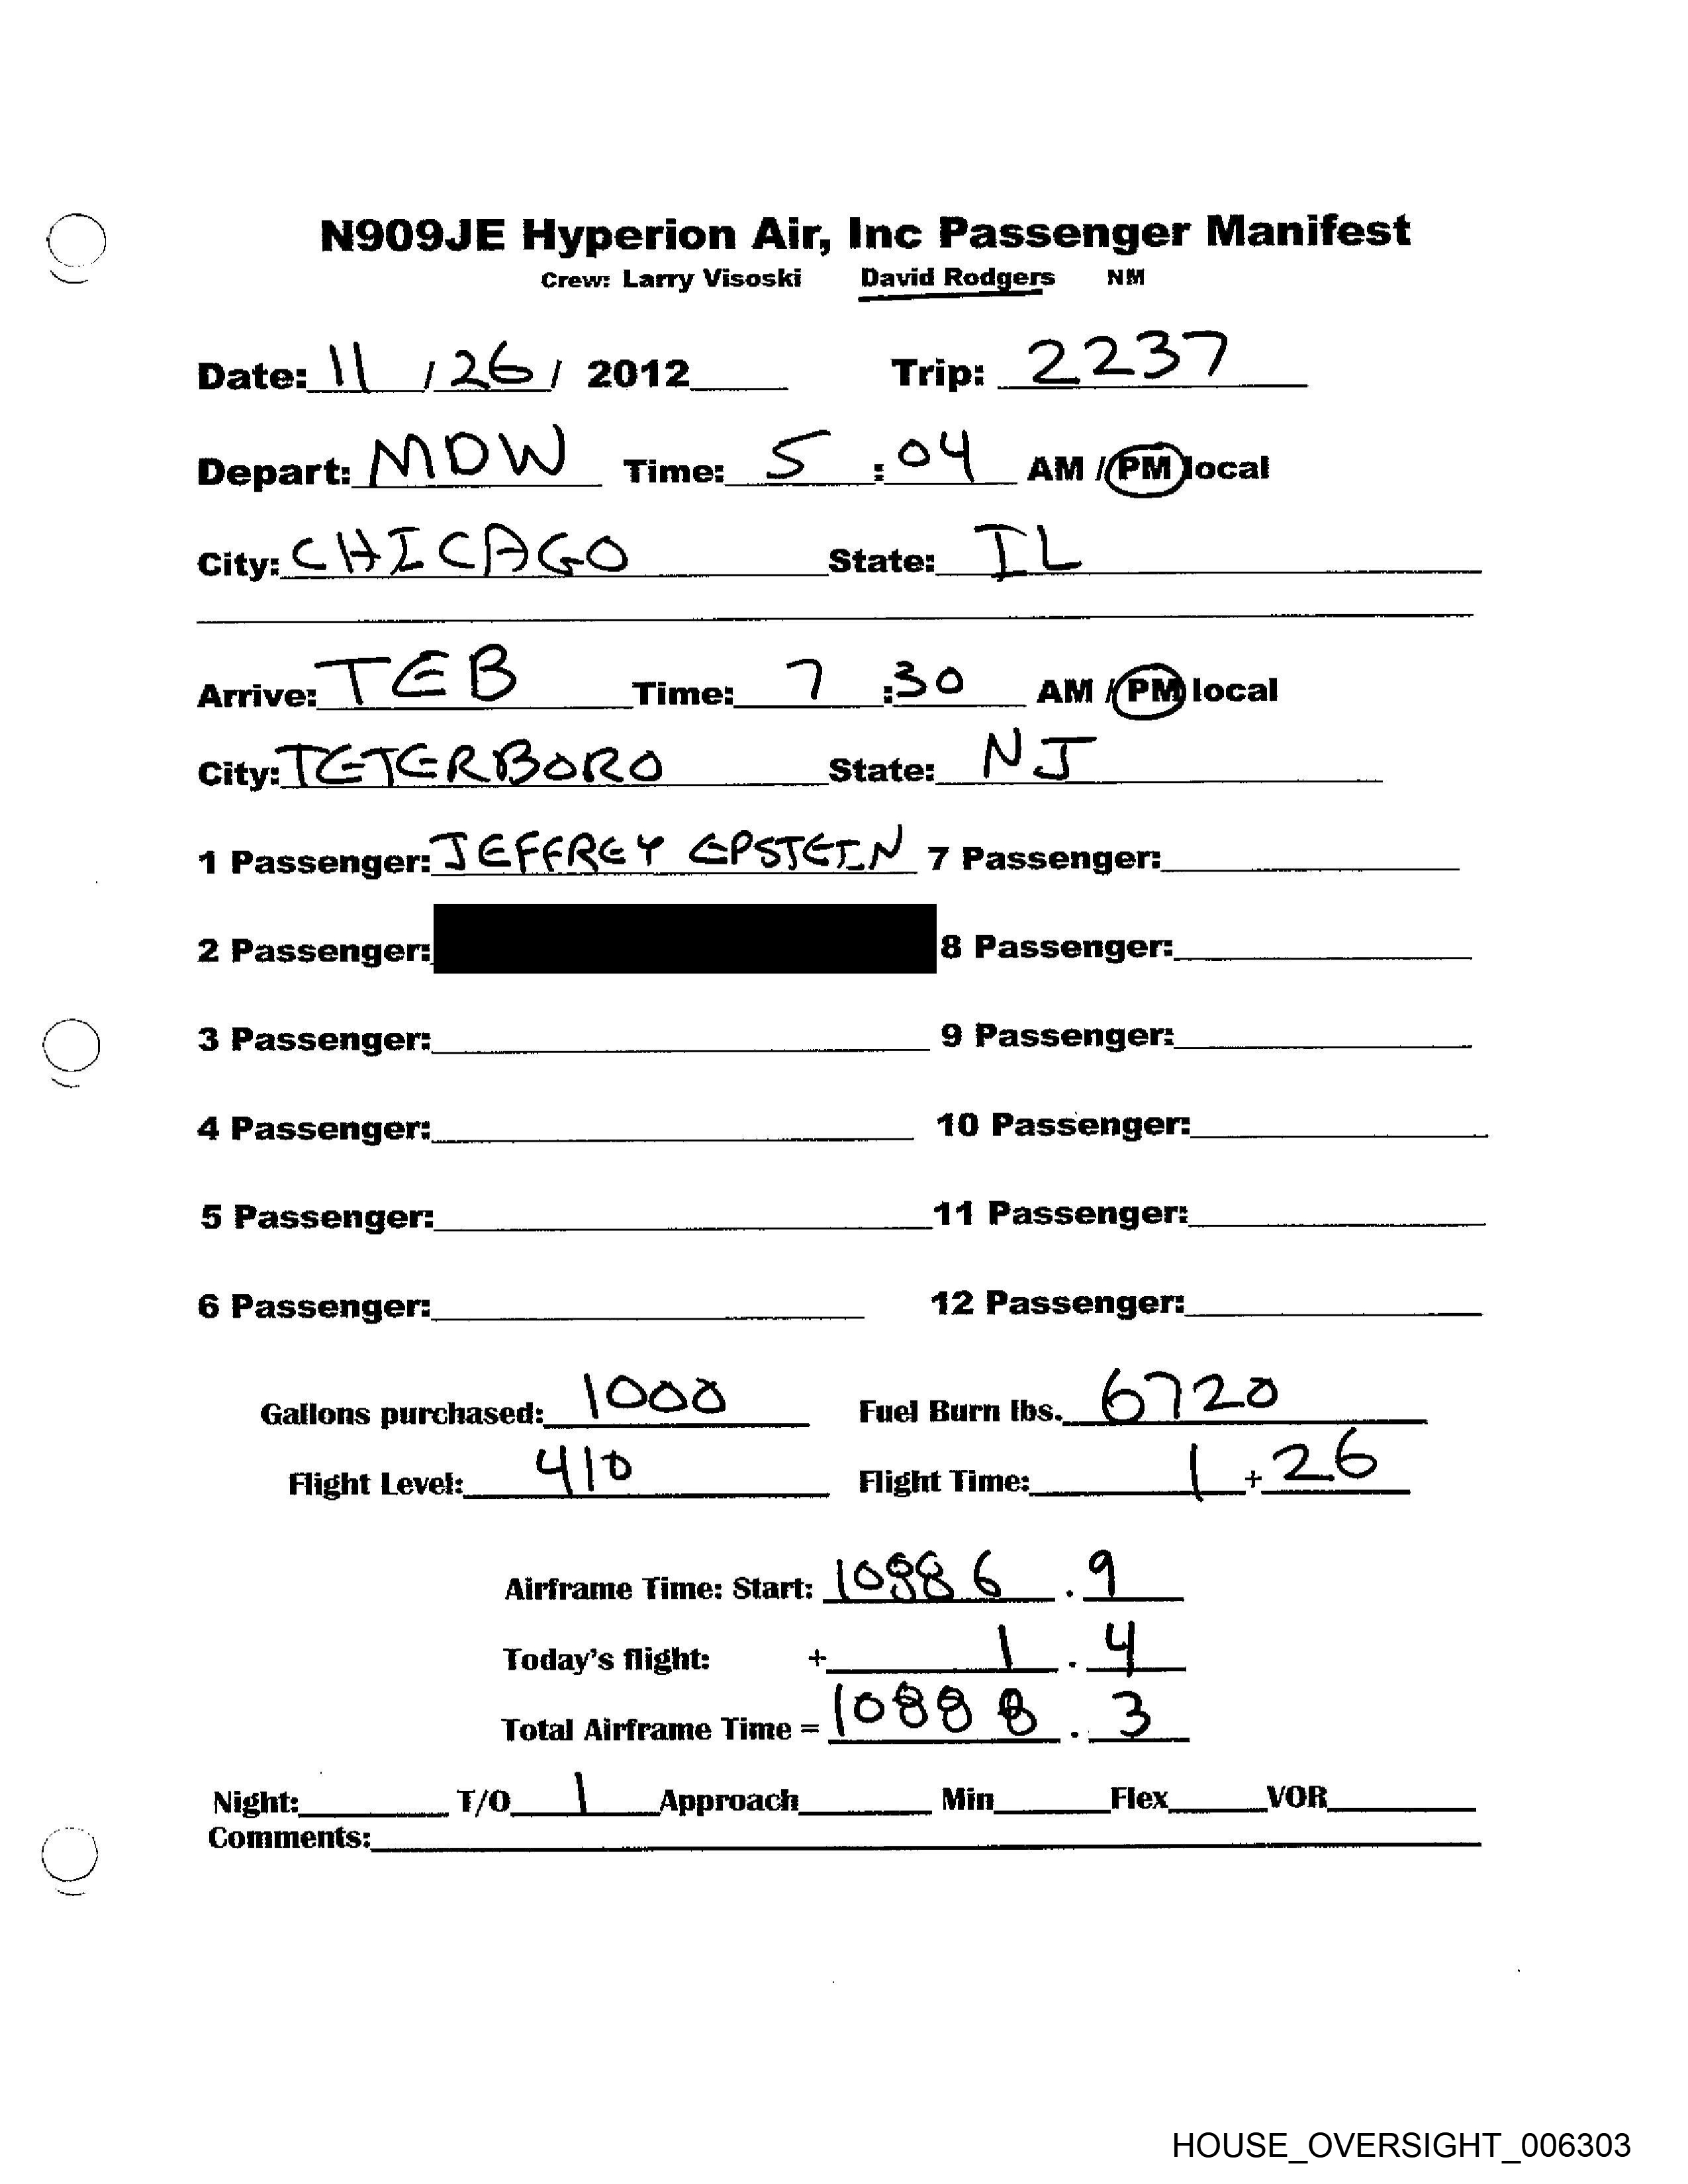 N909JE Hyperion Air, Inc Passenger Manifest
Crew: Larry Visoski David Rodgers NM
Date: 11 / 26 / 2012 Trip: 2237
Depart: MDW Time: 5 : 04 AM / PM local
City: CHICAGO State: IL
Arrive: TEB Time: 7 : 30 AM / PM local
City: TETERBORO State: NJ
1 Passenger: JEFFREY EPSTEIN 7 Passenger:
2 Passenger: 8 Passenger:
3 Passenger: 9 Passenger:
4 Passenger: 10 Passenger:
5 Passenger: 11 Passenger:
6 Passenger: 12 Passenger:
Gallons purchased: 1000 Fuel Burn lbs. 6720
Flight Level: 410 Flight Time: 1 + 26
Airframe Time: Start: 10886 . 9
Today's flight: + 1 . 4
Total Airframe Time = 10888 . 3
Night: T/O 1 Approach Min Flex VOR
Comments:
HOUSE_OVERSIGHT_006303